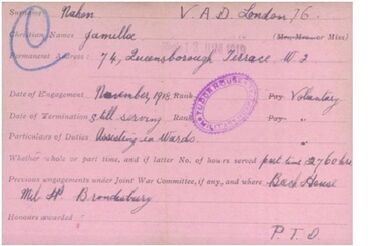 Surname Nahon V.A.D. London 76.
Christian Names Jamilla (Mrs, Mrs or Miss)
Permanent Address : 74, Queensborough Terrace, W.2
Date of Engagement November, 1918 Rank Pay Voluntary
Date of Termination still serving Rank Pay "
Particulars of Duties Assisting in Wards.
Whether whole or part time, and if latter No. of hours served part time 2760 hrs.
Previous engagements under Joint War Committee, if any, and where Beech House
Mil Hp Brondesbury
Honours awarded
P.T.O